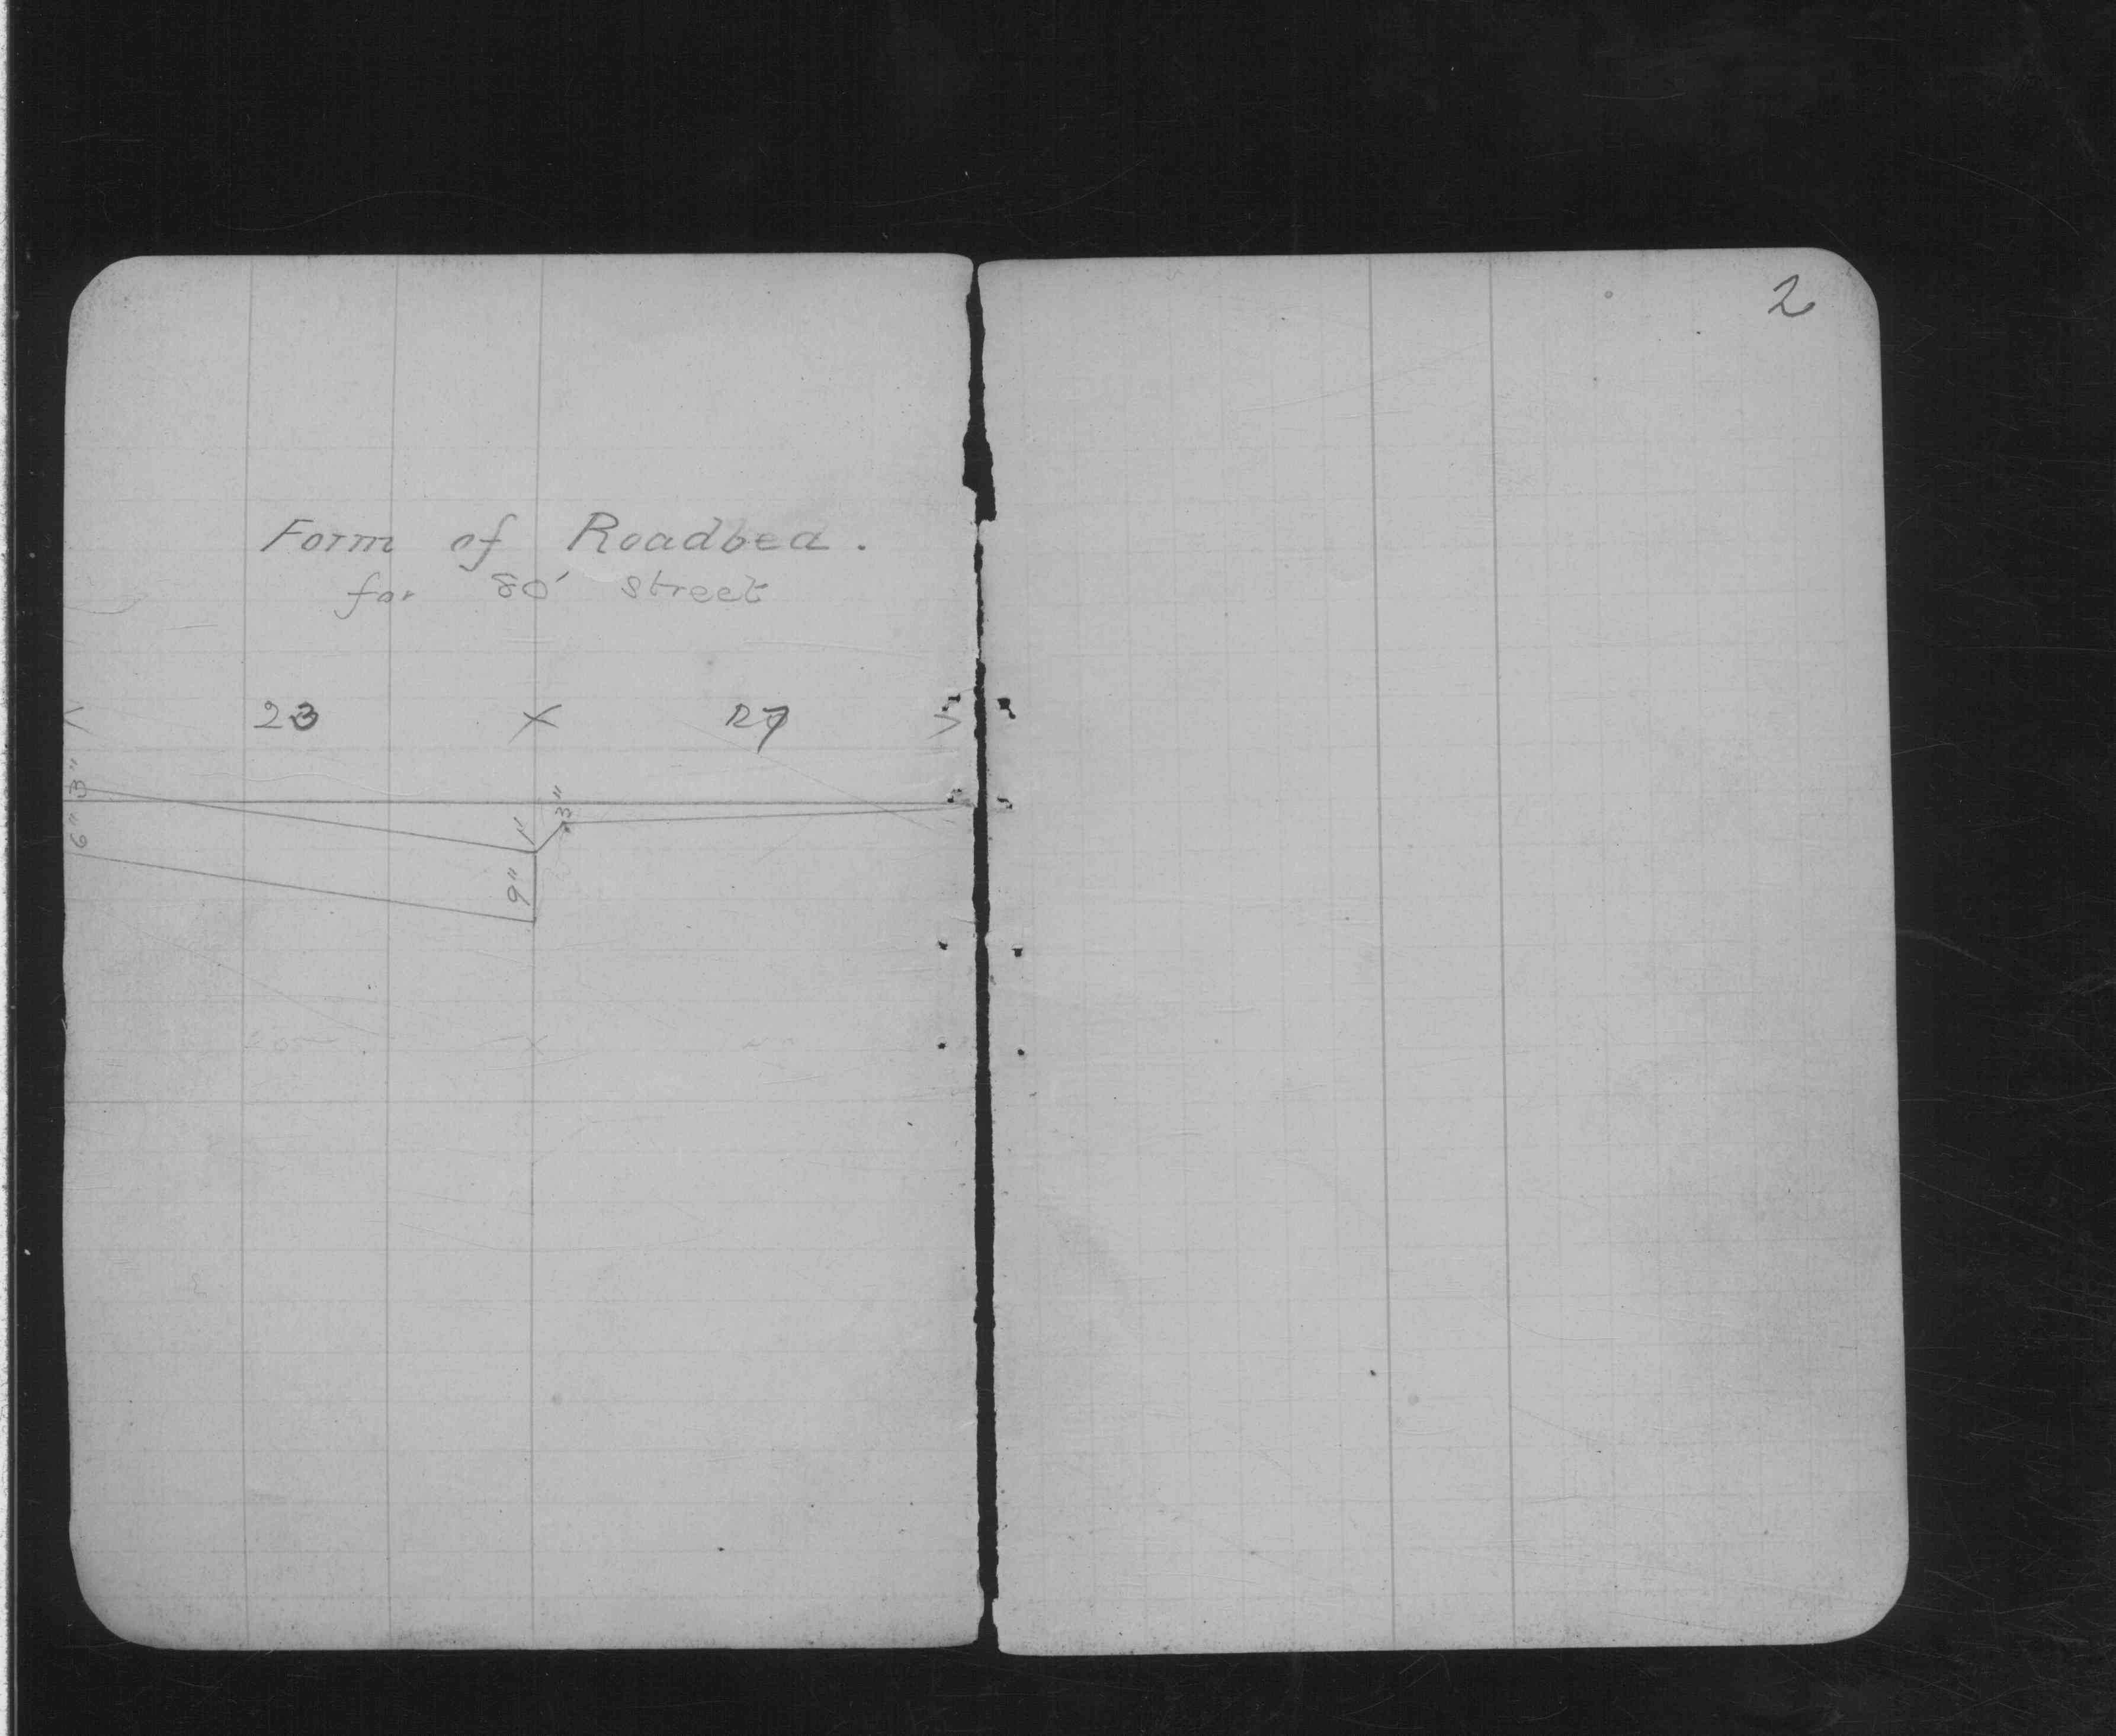 2
Form of Roadbed.
for 80' street
< 23 X 27 >
3" 3"
6" 1"
9"